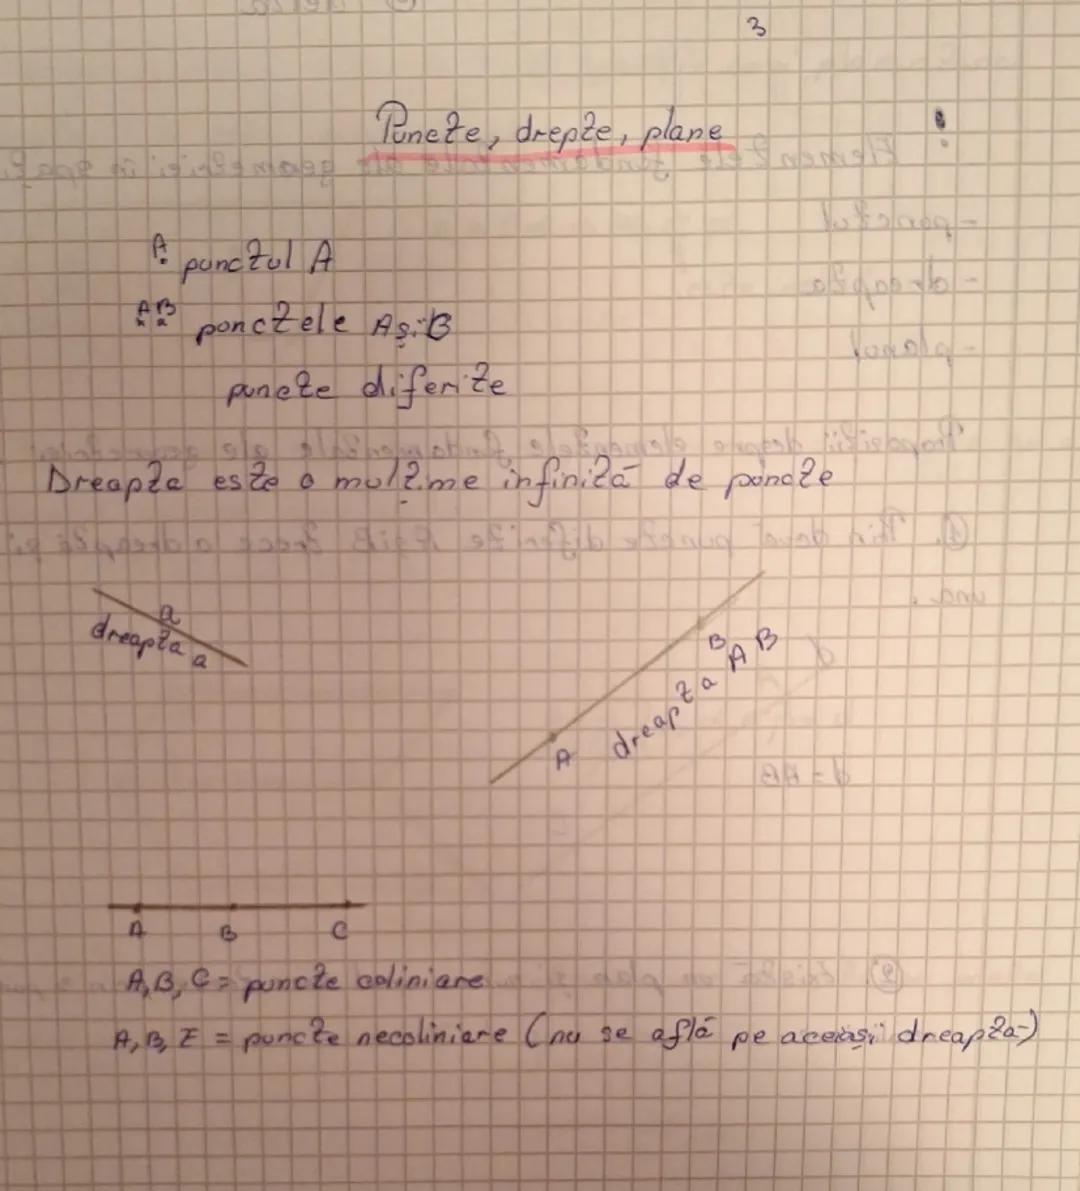 3
Puncte, drepte, plane
!
A
punctul A
A B
punctele A și B
puncte diferite
Dreapta este o mulțime infinită de puncte
a
dreapta a
B
dreapta AB
A
A B C
A, B, C = puncte coliniare
A, B, E = puncte necoliniare (nu se află pe aceiași dreapta)